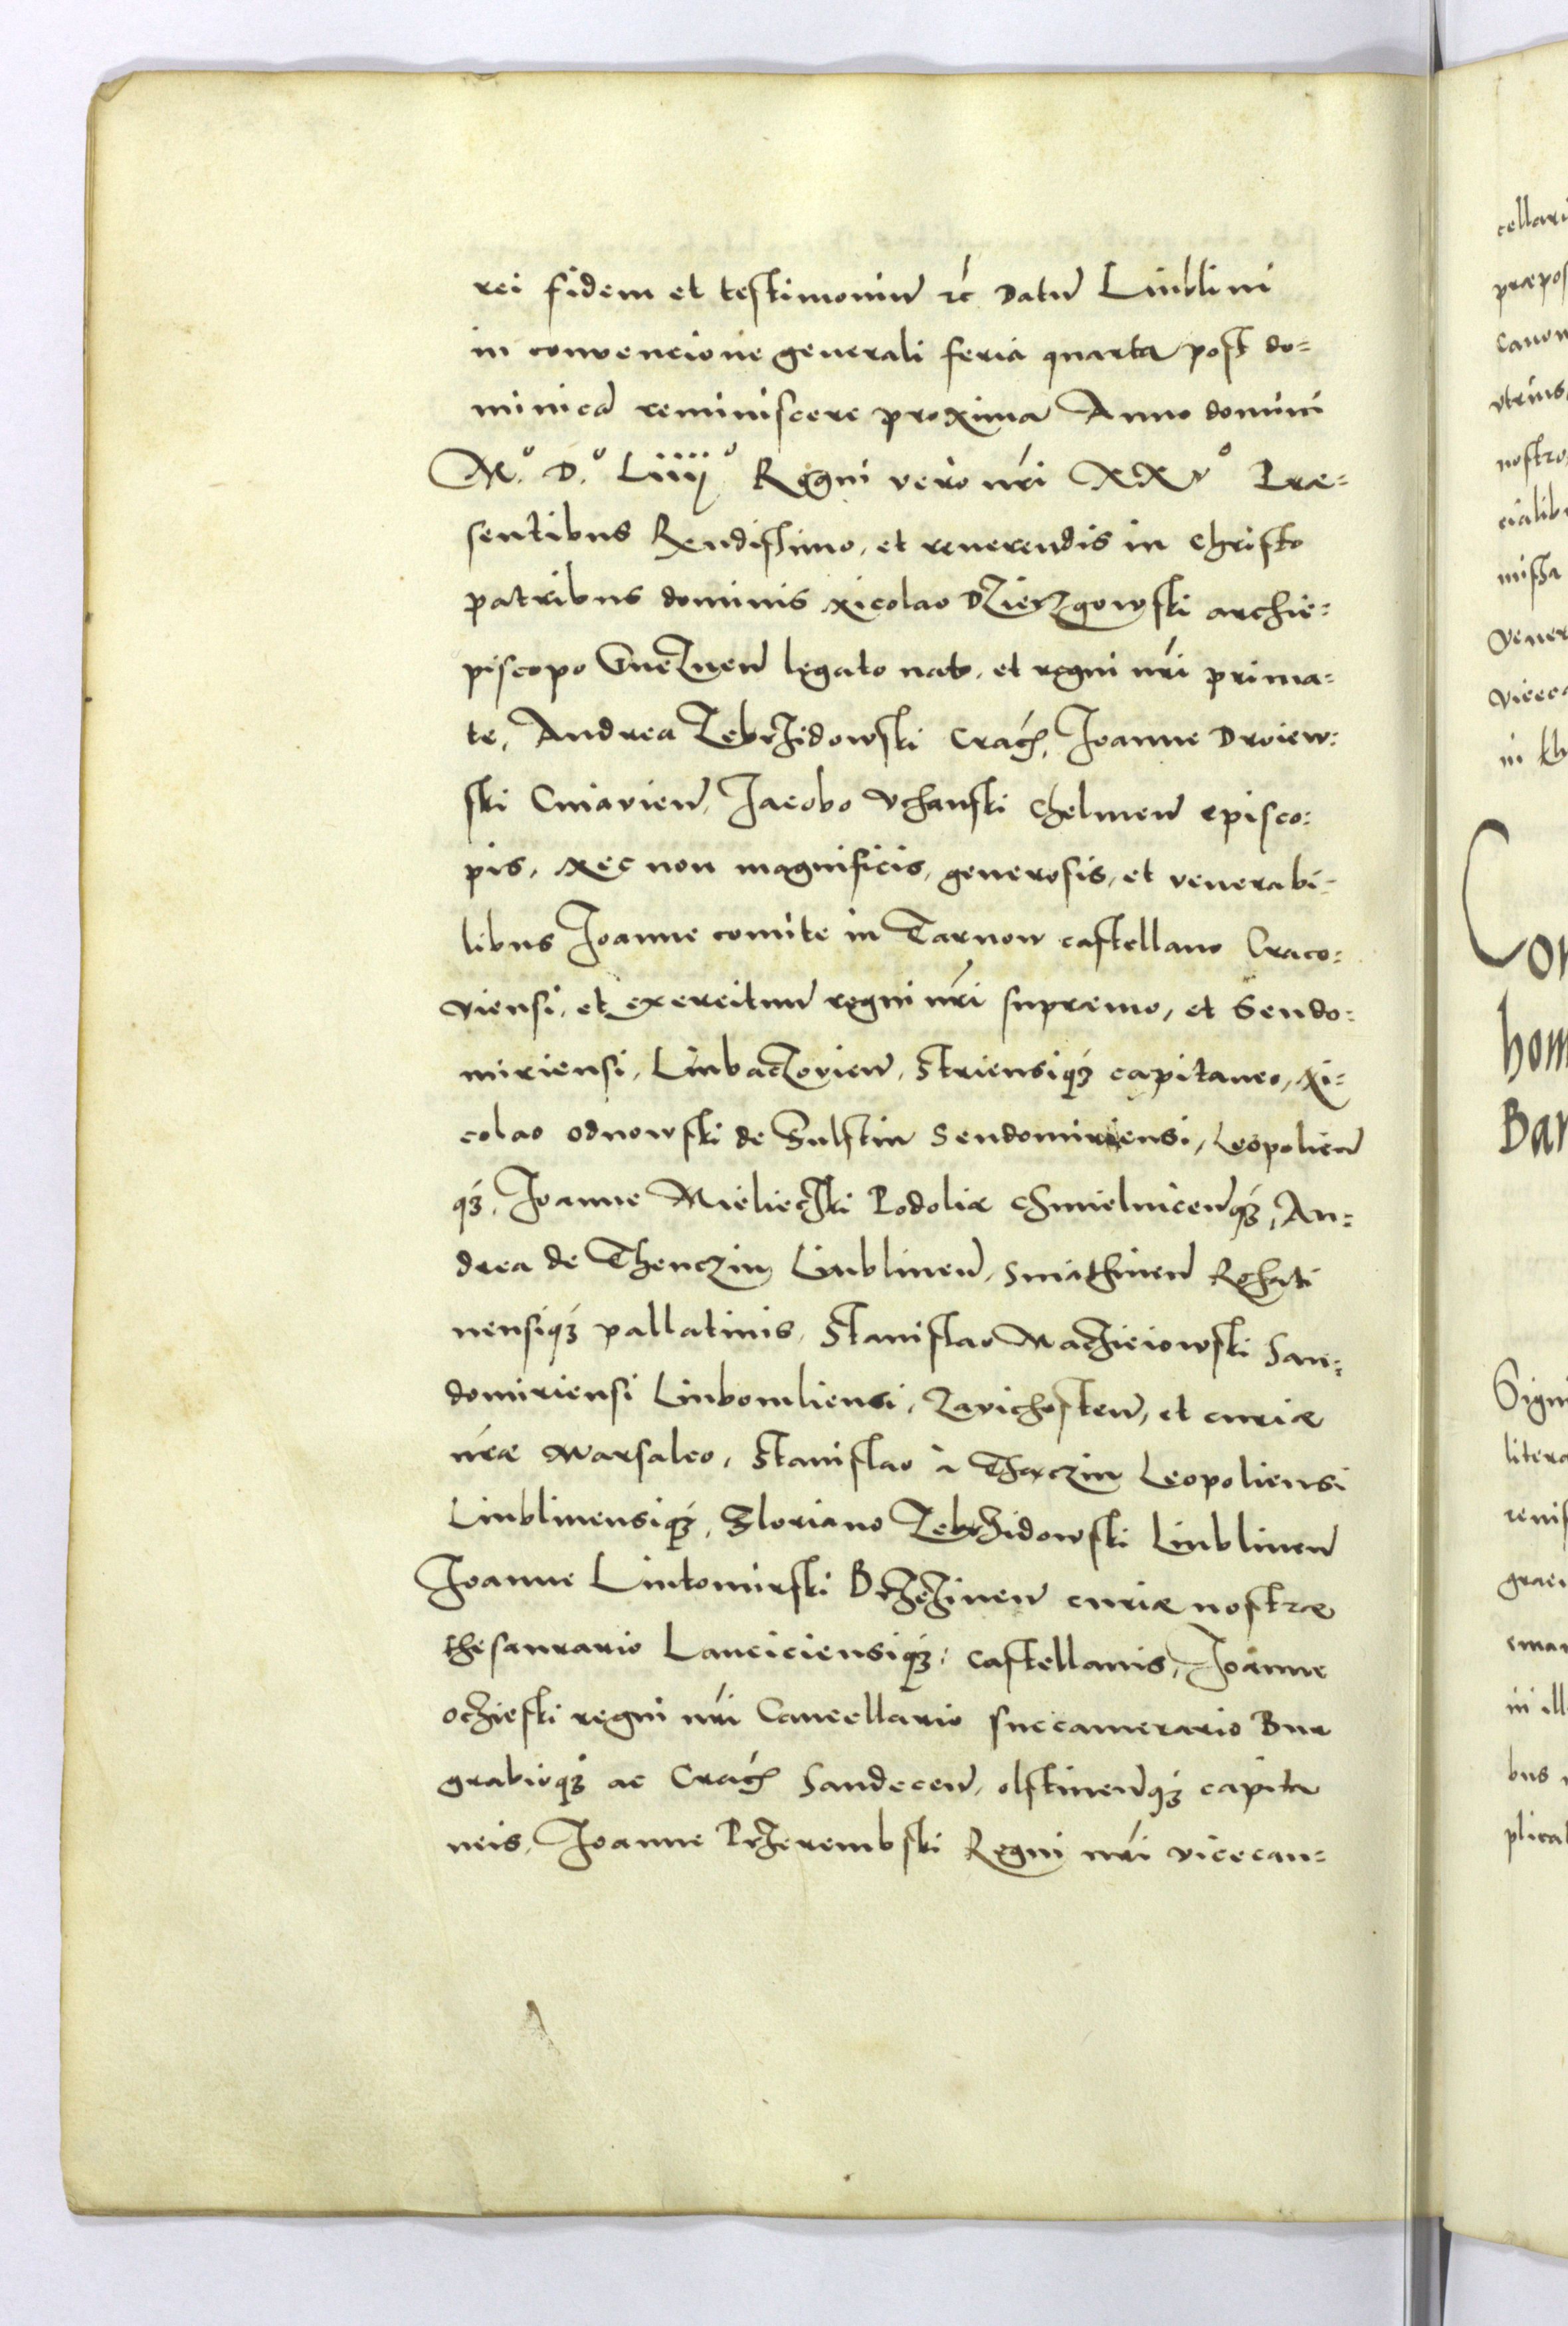 rei fidem et testimoniū ꝛc̃ Datū Liublini
in convencione generali feria quarta post do=
minicā reminiscere proxima Anno domini
M.º D.º Liiijº Regni vero nr̃i XXvº Præ=
sentibus Rendissimo, et reuerendis in Christo
patribus dominis Nicolao Dzierzgowski archie=
piscopo Gneznen̄ legato nato, et regni nr̃i prima=
te, Andrea Zebrzidowski Crac̃, Joanne Droiew=
ski Cuiavien̄, Jacobo Vchanski Chelmen̄ episco=
pis, Nec non magnificis, generosis, et venerabi=
libus Joanne comite in Tarnow castellano Craco=
viensi, et exercituū regni nr̃i supremo, et Sendo=
miriensi, Liubaczovien̄, Striensiqꝫ capitaneo, Ni=
colao Odnowski de Fulstin Sendomiriensi, Leopolien̄
qꝫ, Joanne Mielieczki Podoliæ Chmielnicen̄qꝫ, An=
drea de Thenczin Liublinen̄, Sniathinen̄ Rohati
nensiqꝫ pallatinis, Stanislao Maczieiowski San=
domiriensi Liubomliensi, Zavichosten̄, et curiæ
nr̃æ Marsaleo, Stanislao à Thęczin Leopoliensi
Liublinensiqꝫ, Floriano Zebrzidowski Liublinen̄
Joanne Liutomirski Brzezinen̄ curiæ nostræ
thesaurario Lanciciensiqꝫ: castellanis, Joanne
Oczieski regni nr̃i Cancellario succamerario Bur
grabioqꝫ ac Crac̃ Sandecen̄, Olstinen̄qꝫ capita
neis, Joanne Przerembski Regni nr̃i vicecan=
cellari
præpos
Canon
vtrius
nostro
cialib
missa
Vener
Vicec
in
Con
hom
Bar
Signi
litera
renis
graci
eman
in ill
bus
plica